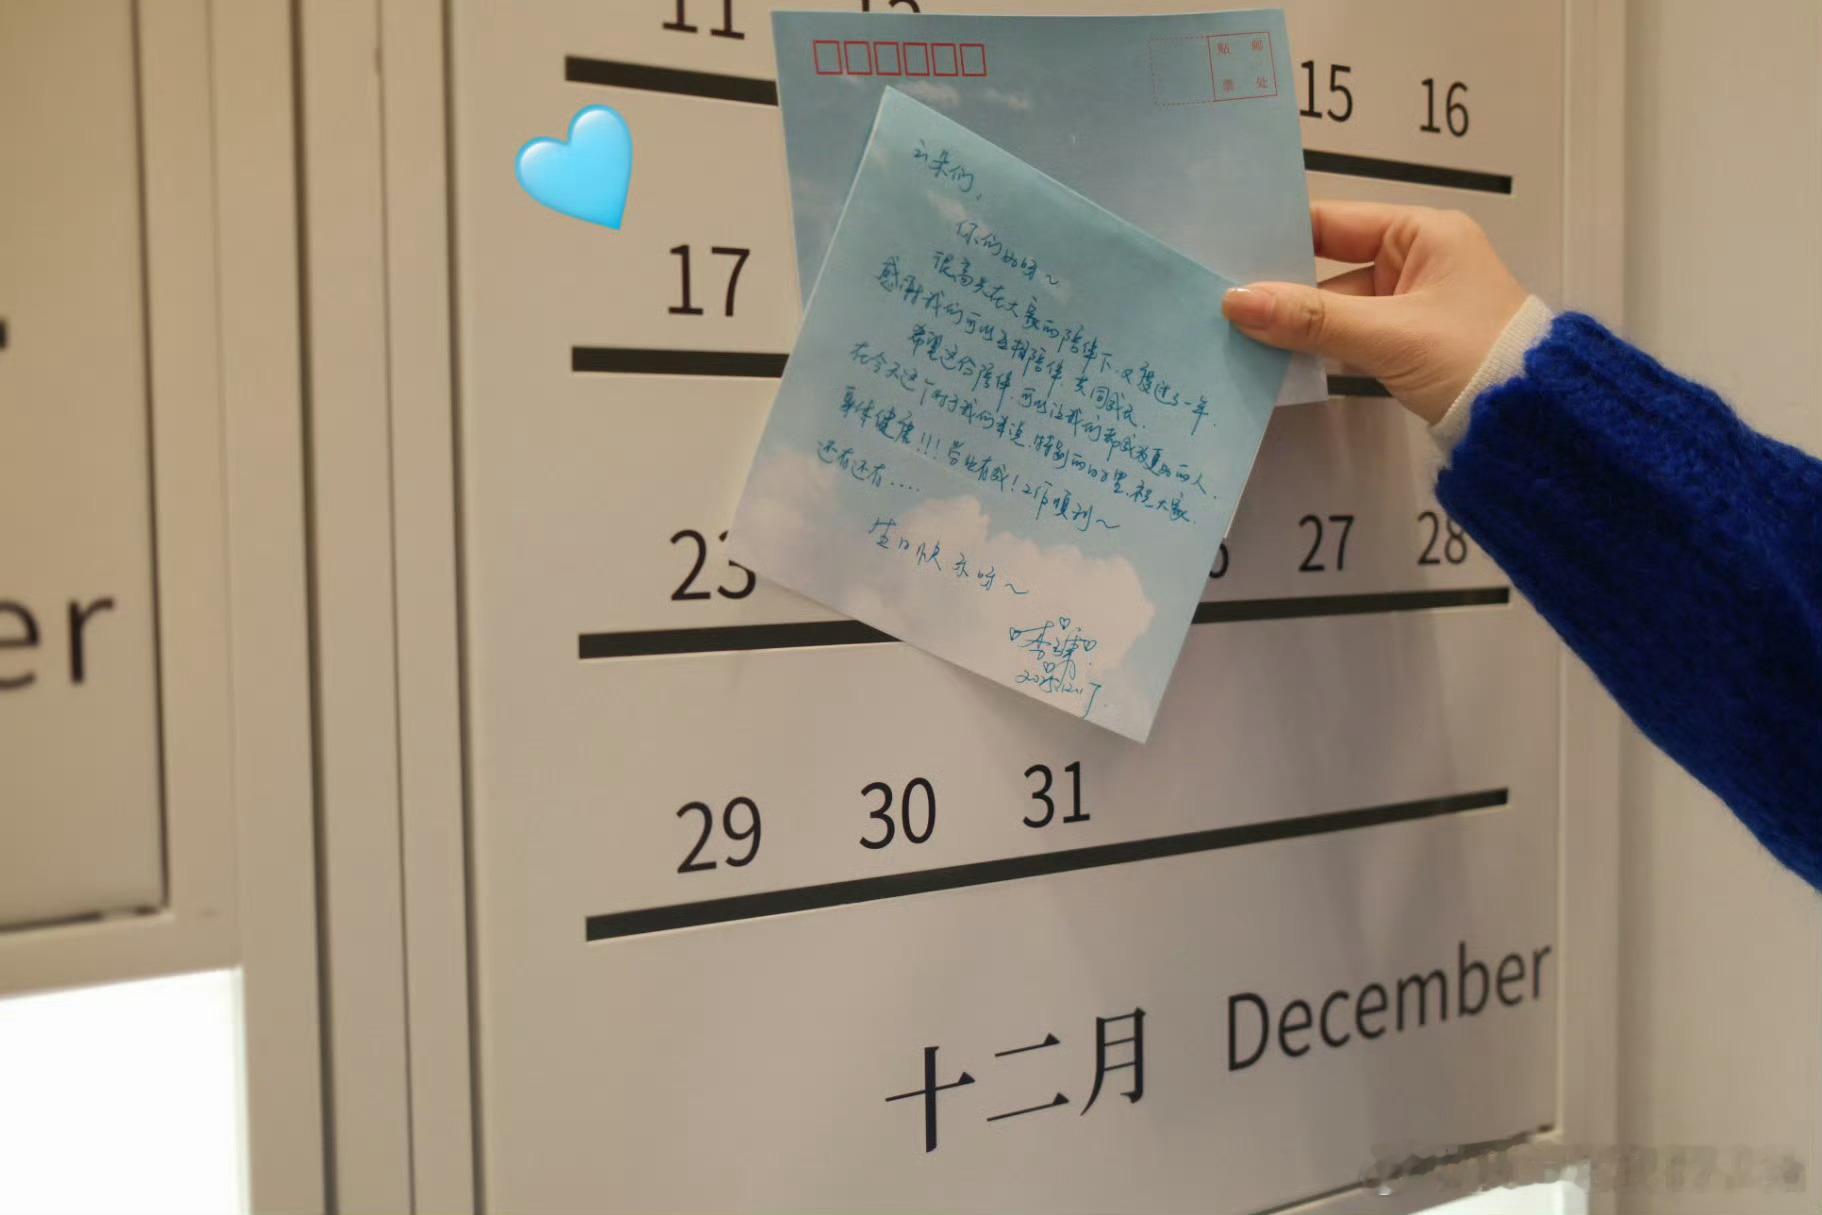 11 12
15 16
贴 邮
票 处
云朵们，
你们好呀～
很高兴在大家的陪伴下，又度过了一年，
感谢我们可以互相陪伴，共同成长．
希望这份陪伴，可以让我们都成为更好的人．
在今天这个对于我们来说，特别的日子里，祝大家，
身体健康！！！学业有成！工作顺利～
还有还有....
生日快乐呀～
17
23
27 28
29 30 31
十二月 December
er